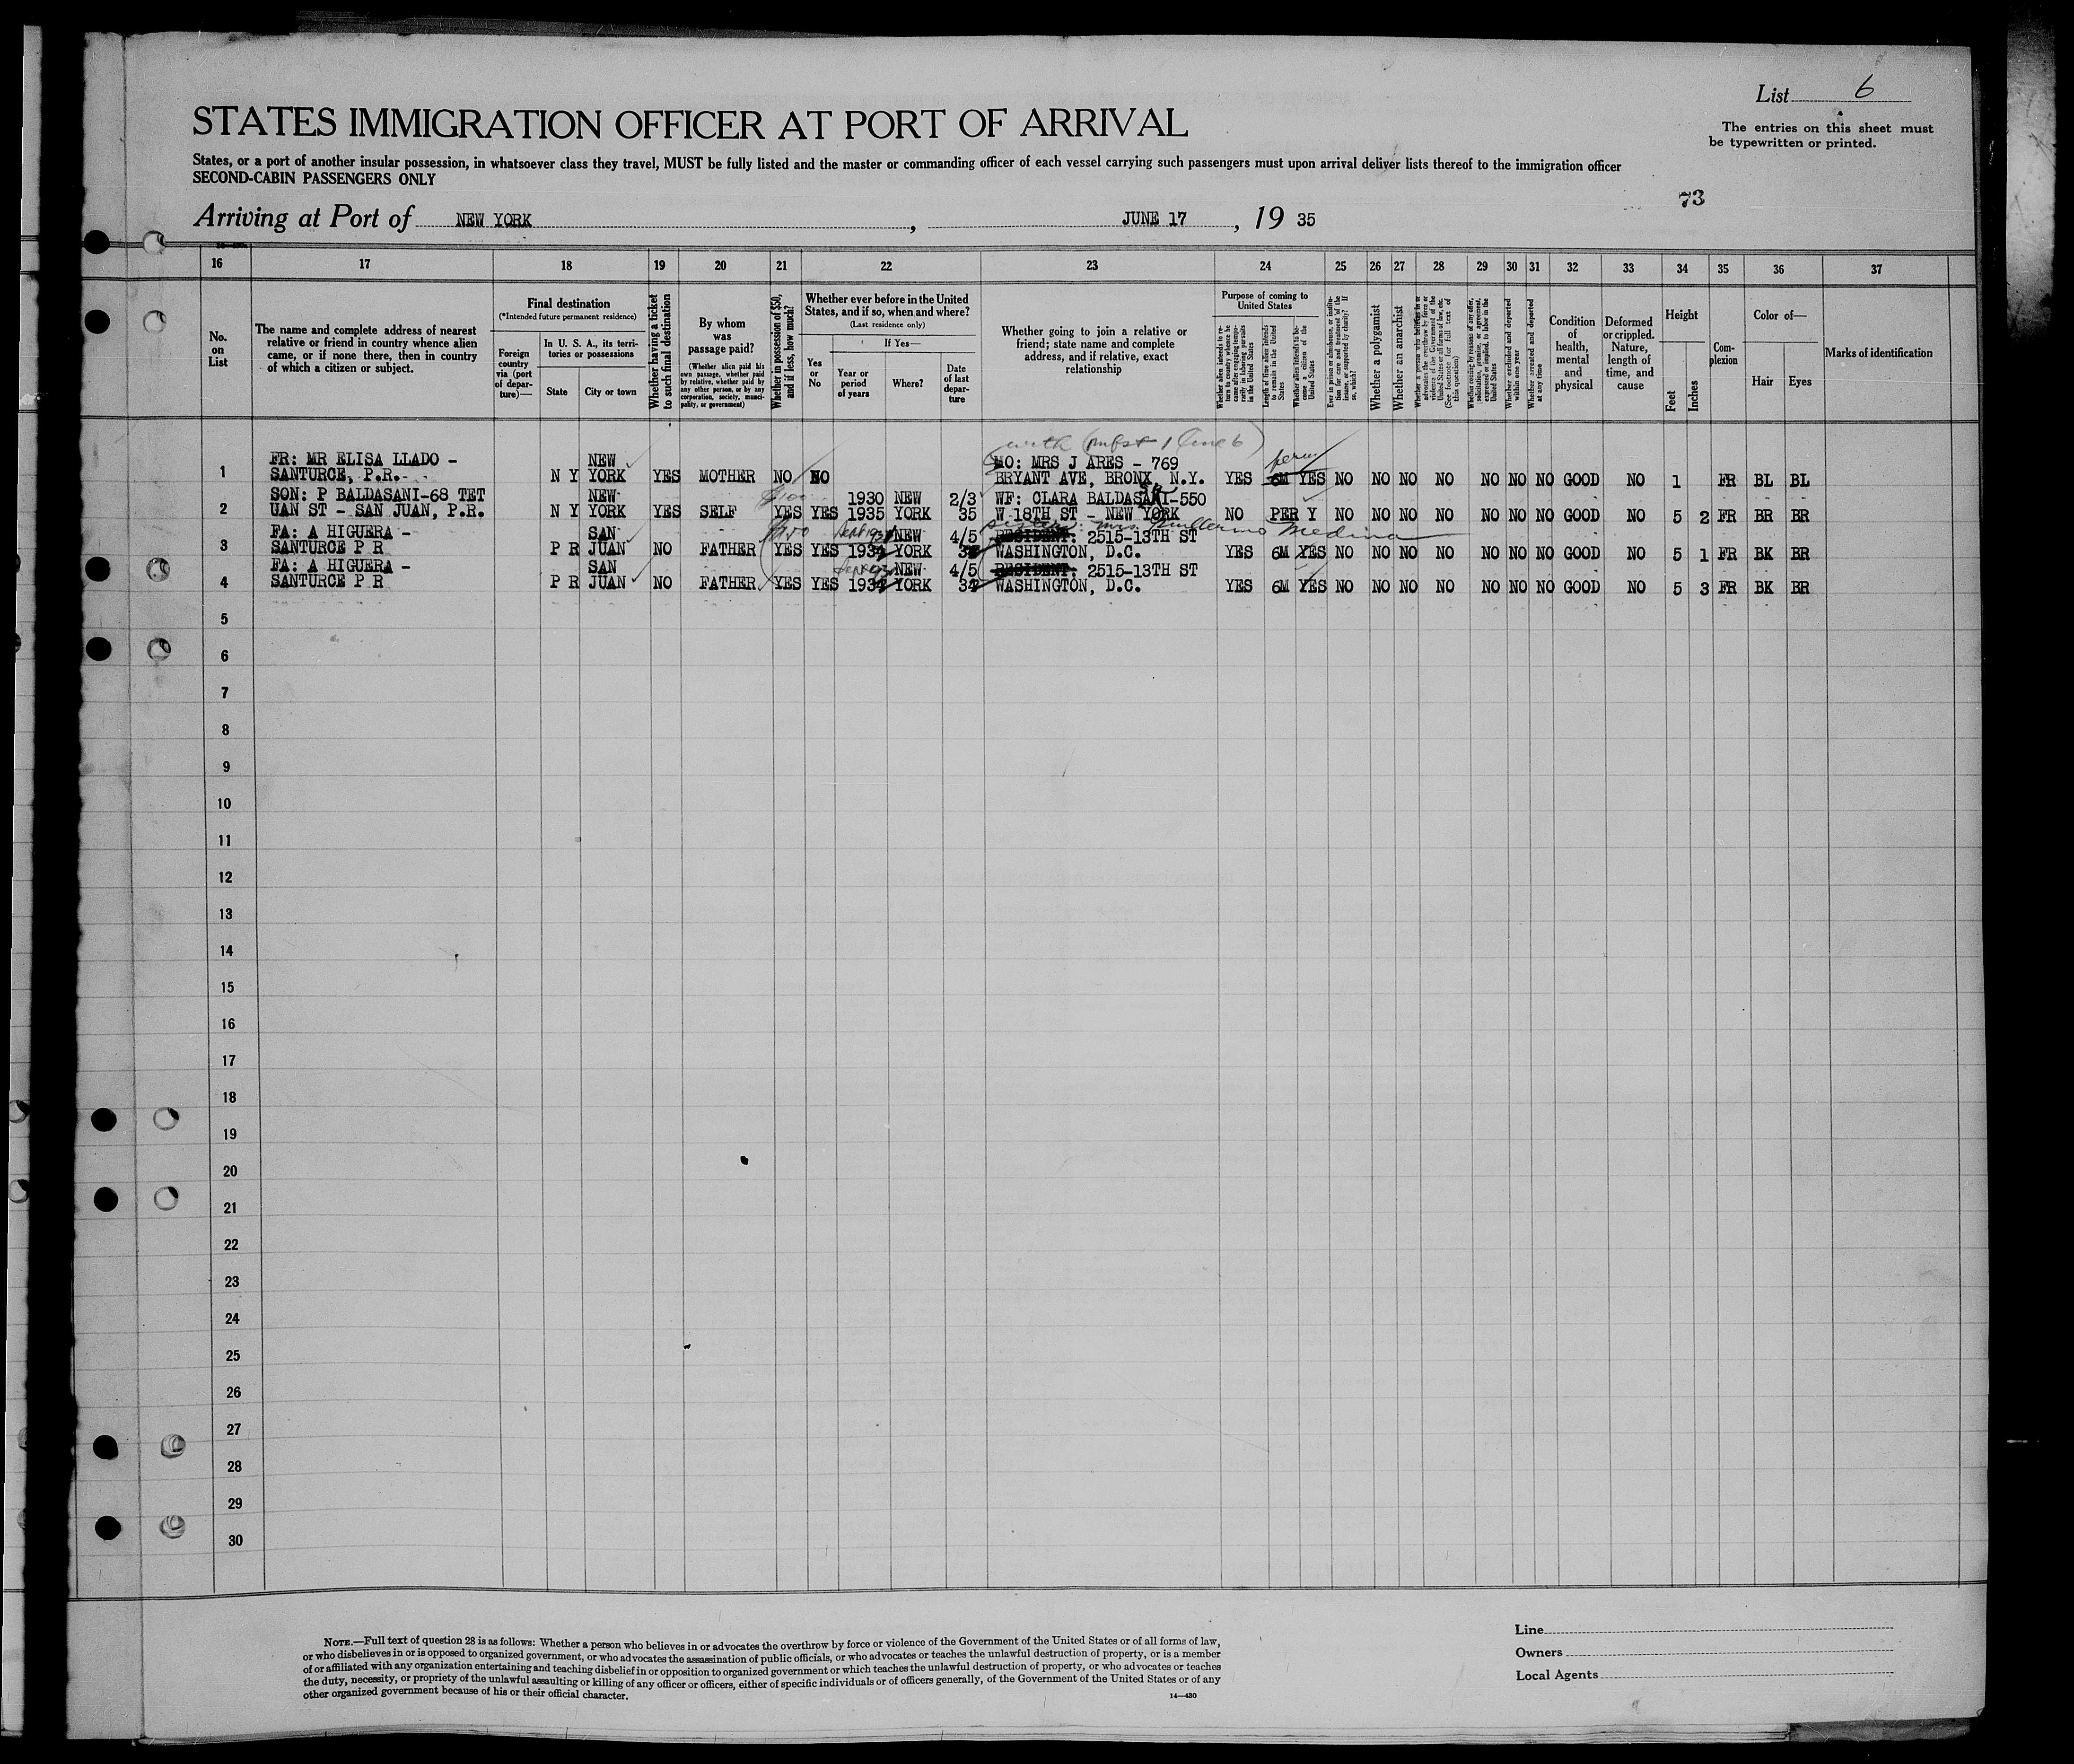 List 6
STATES IMMIGRATION OFFICER AT PORT OF ARRIVAL
The entries on this sheet must
be typewritten or printed.
States, or a port of another insular possession, in whatsoever class they travel, MUST be fully listed and the master or commanding officer of each vessel carrying such passengers must upon arrival deliver lists thereof to the immigration officer
SECOND-CABIN PASSENGERS ONLY
73
Arriving at Port of NEW YORK, JUNE 17, 19 35
16 17 18 19 20 21 22 23 24 25 26 27 28 29 30 31 32 33 34 35 36 37
No. on List
The name and complete address of nearest
relative or friend in country whence alien
came, or if none there, then in country
of which a citizen or subject.
Final destination
(*Intended future permanent residence)
Foreign country via (port of depar-ture)—
In U. S. A., its terri-
tories or possessions
State
City or town
Whether having a ticket
to such final destination
By whom
was
passage paid?
(Whether alien paid his
own passage, whether paid
by relative, whether paid by
any other person, or by any
corporation, society, munici-
pality, or government)
Whether in possession of $50,
and if less, how much?
Whether ever before in the United
States, and if so, when and where?
(Last residence only)
Yes or No
If Yes—
Year or period of years
Where?
Date of last depar-ture
Whether going to join a relative or
friend; state name and complete
address, and if relative, exact
relationship
Purpose of coming to
United States
Length of time alien intends
to remain in the United
States
Whether alien intends to be-
come a citizen of the
United States
Whether a polygamist
Whether an anarchist
Whether excluded and deported
within one year
Whether arrested and deported
at any time
Condition
of
health,
mental
and
physical
Deformed
or crippled.
Nature,
length of
time, and
cause
Height
Feet
Inches
Com-
plexion
Color of—
Hair
Eyes
Marks of identification
with
perm
FR: MR ELISA LLADO - NEW MO: MRS J ARES - 769
1 SANTURCE, P.R. N Y YORK YES MOTHER NO NO BRYANT AVE, BRONX, N.Y. YES 6M YES NO NO NO NO NO NO NO GOOD NO 1 FR BL BL
SON: P BALDASANI-68 TET NEW 1930 NEW 2/3 WF: CLARA BALDASANI-550
2 UAN ST - SAN JUAN, P.R. N Y YORK YES SELF YES YES 1935 YORK 35 W 18TH ST - NEW YORK NO PER Y NO NO NO NO NO NO NO GOOD NO 5 2 FR BR BR
Medina
FA: A HIGUERA - SAN NEW 4/5 RESIDENT: 2515-13TH ST
3 SANTURCE P R P R JUAN NO FATHER YES YES 1934 YORK WASHINGTON, D.C. YES 6M YES NO NO NO NO NO NO NO GOOD NO 5 1 FR BK BR
FA: A HIGUERA - SAN NEW 4/5 RESIDENT: 2515-13TH ST
4 SANTURCE P R P R JUAN NO FATHER YES YES 1934 YORK WASHINGTON, D.C. YES 6M YES NO NO NO NO NO NO NO GOOD NO 5 3 FR BK BR
5
6
7
8
9
10
11
12
13
14
15
16
17
18
19
20
21
22
23
24
25
26
27
28
29
30
NOTE.—Full text of question 28 is as follows: Whether a person who believes in or advocates the overthrow by force or violence of the Government of the United States or of all forms of law,
or who disbelieves in or is opposed to organized government, or who advocates the assassination of public officials, or who advocates or teaches the unlawful destruction of property, or is a member
of or affiliated with any organization entertaining and teaching disbelief in or opposition to organized government or which teaches the unlawful destruction of property, or who advocates or teaches
the duty, necessity, or propriety of the unlawful assaulting or killing of any officer or officers, either of specific individuals or of officers generally, of the Government of the United States or of any
other organized government because of his or their official character.
14—430
Line
Owners
Local Agents